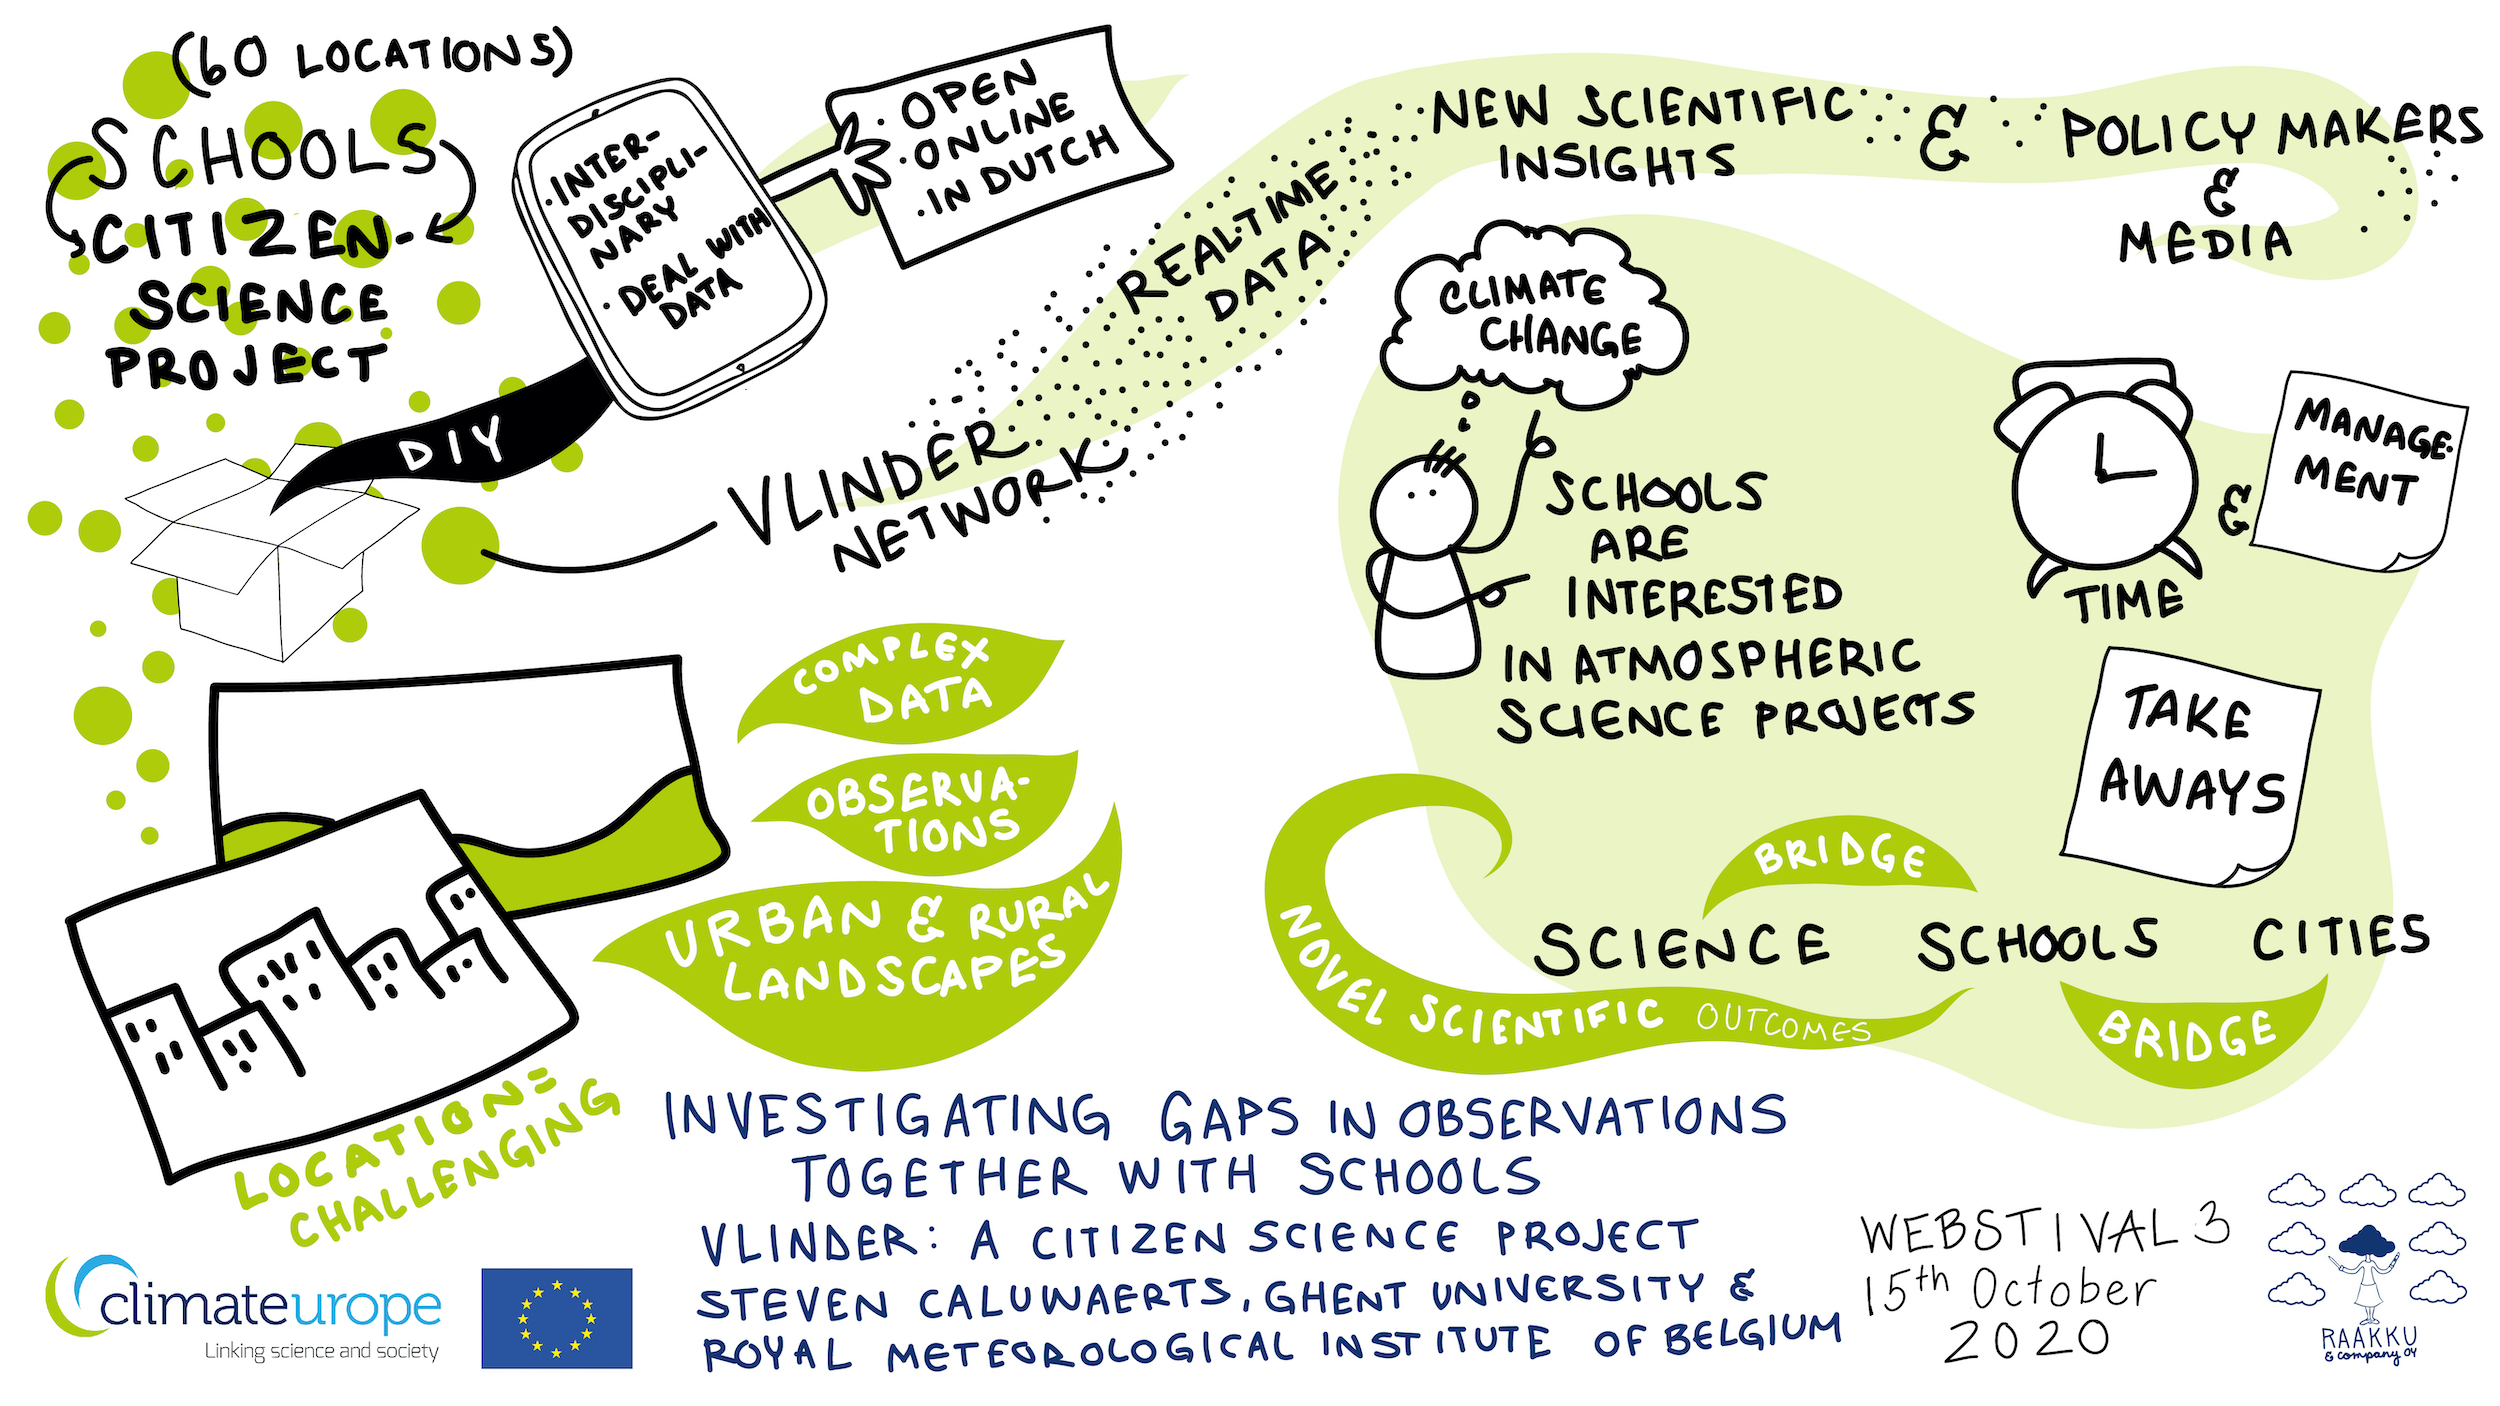 (60 LOCATIONS)
SCHOOLS
CITIZEN-
SCIENCE
PROJECT
DIY
• INTER-
DISCIPLI-
NARY
• DEAL WITH
DATA
• OPEN
• ONLINE
• IN DUTCH
VLINDER
NETWORK
REALTIME
DATA
NEW SCIENTIFIC
INSIGHTS
&
POLICY MAKERS
&
MEDIA
CLIMATE
CHANGE
SCHOOLS
ARE
INTERESTED
IN ATMOSPHERIC
SCIENCE PROJECTS
TIME
&
MANAGE-
MENT
TAKE
AWAYS
COMPLEX
DATA
OBSERVA-
TIONS
URBAN & RURAL
LANDSCAPES
LOCATION=
CHALLENGING
BRIDGE
SCIENCE SCHOOLS CITIES
BRIDGE
NOVEL SCIENTIFIC OUTCOMES
INVESTIGATING GAPS IN OBSERVATIONS
TOGETHER WITH SCHOOLS
VLINDER: A CITIZEN SCIENCE PROJECT
STEVEN CALUWAERTS, GHENT UNIVERSITY &
ROYAL METEOROLOGICAL INSTITUTE OF BELGIUM
climateurope
Linking science and society
WEBSTIVAL 3
15th October
2020
RAAKKU
& company OY